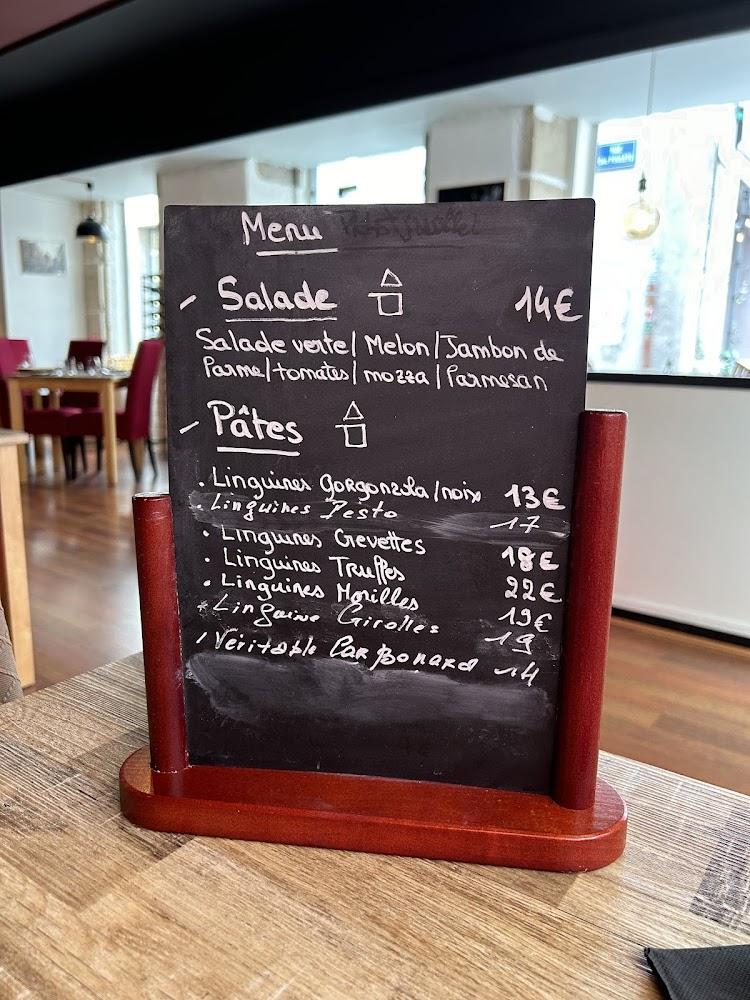 Menu
Salade 14€
Salade verte / Melon / Jambon de
Parme / tomates / mozza / Parmesan
Pâtes
. Linguines gorgonzola / noix 13€
. Linguines Pesto 17
. Linguines Crevettes 18€
. Linguines Truffes 22€
. Linguines Morilles 19€
* Linguine Girolles 19
/ Véritable Carbonara 14